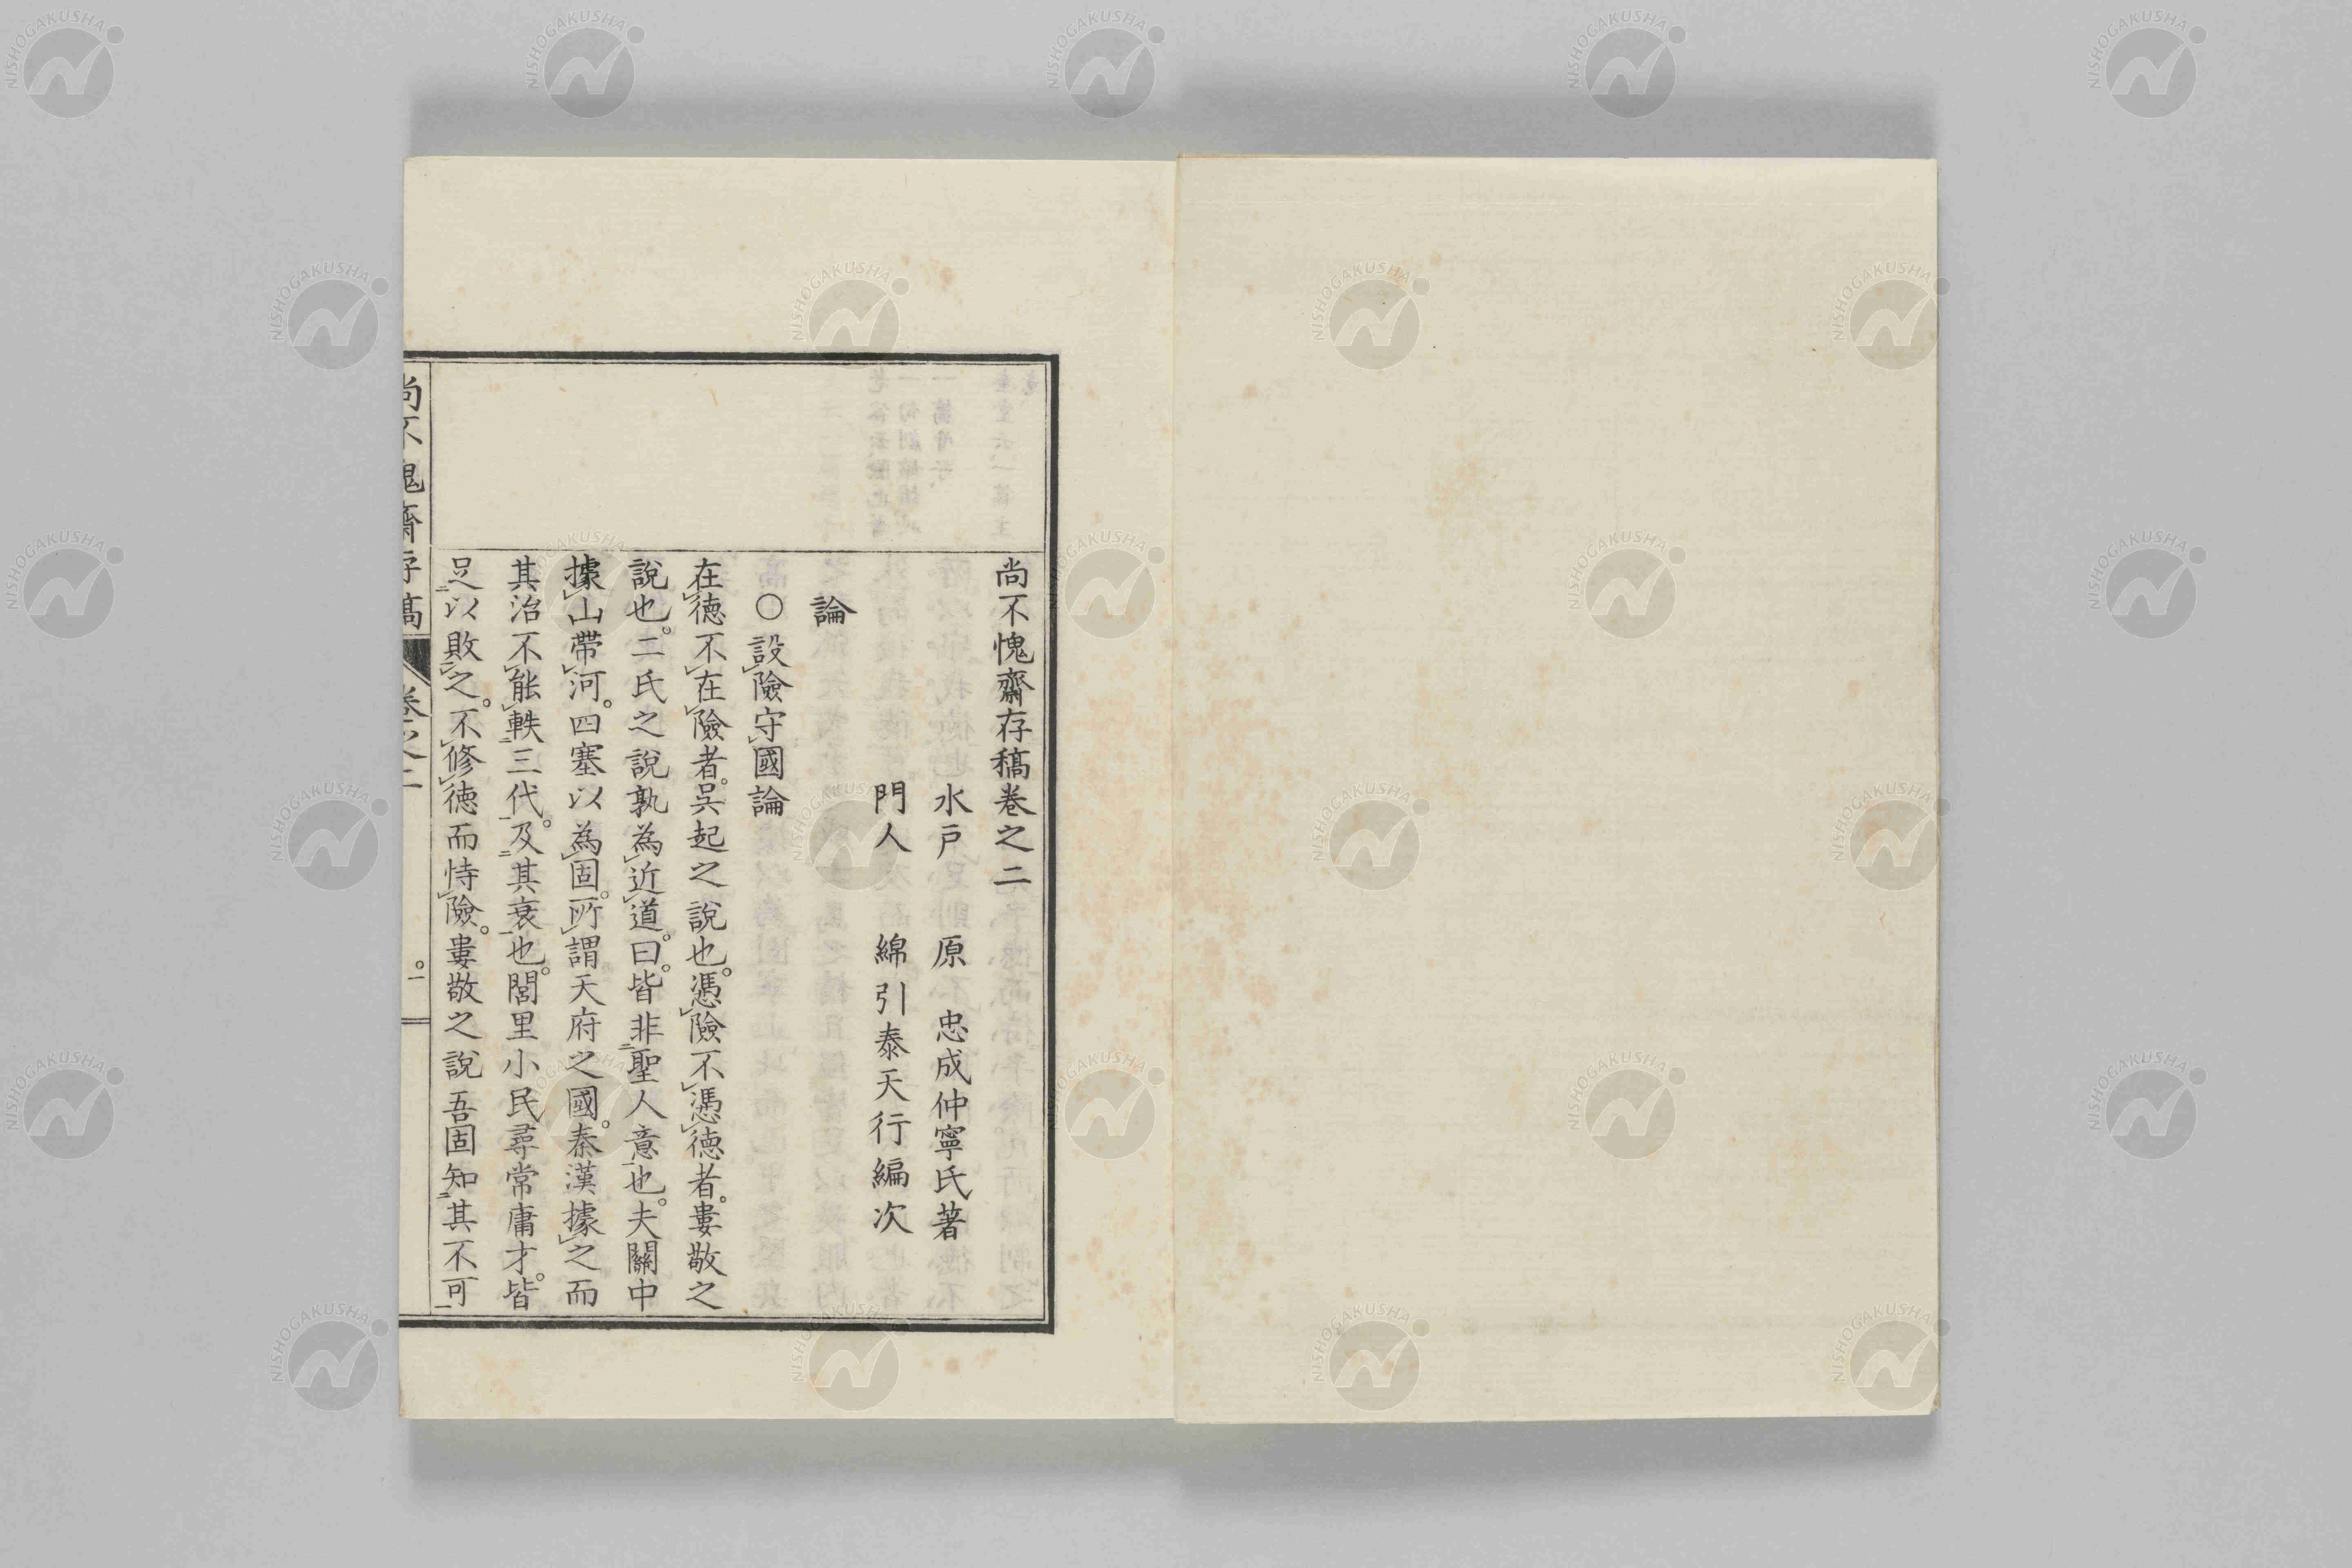 尚不愧齋存稿卷之二
水戸　原　忠成仲寧氏著
門人　綿引泰天行編次
論
○設険守國論
在德不在險者。吳起之說也。憑險不憑德者。婁敬之
說也。二氏之說孰為近道。曰。皆非聖人意也。夫關中
據山帶河。四塞以為固。所謂天府之國。秦漢據之而
其治不能軼三代。及其衰也。閭里小民尋常庸才。皆
足以敗之。不修德而恃險。婁敬之說吾固知其不可
尚不愧齋存稿　卷之二　一
NISHOGAKUSHA